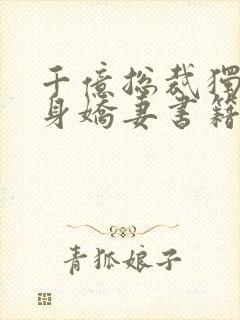 千億總裁獨
身嬌妻書籍
青狐娘子